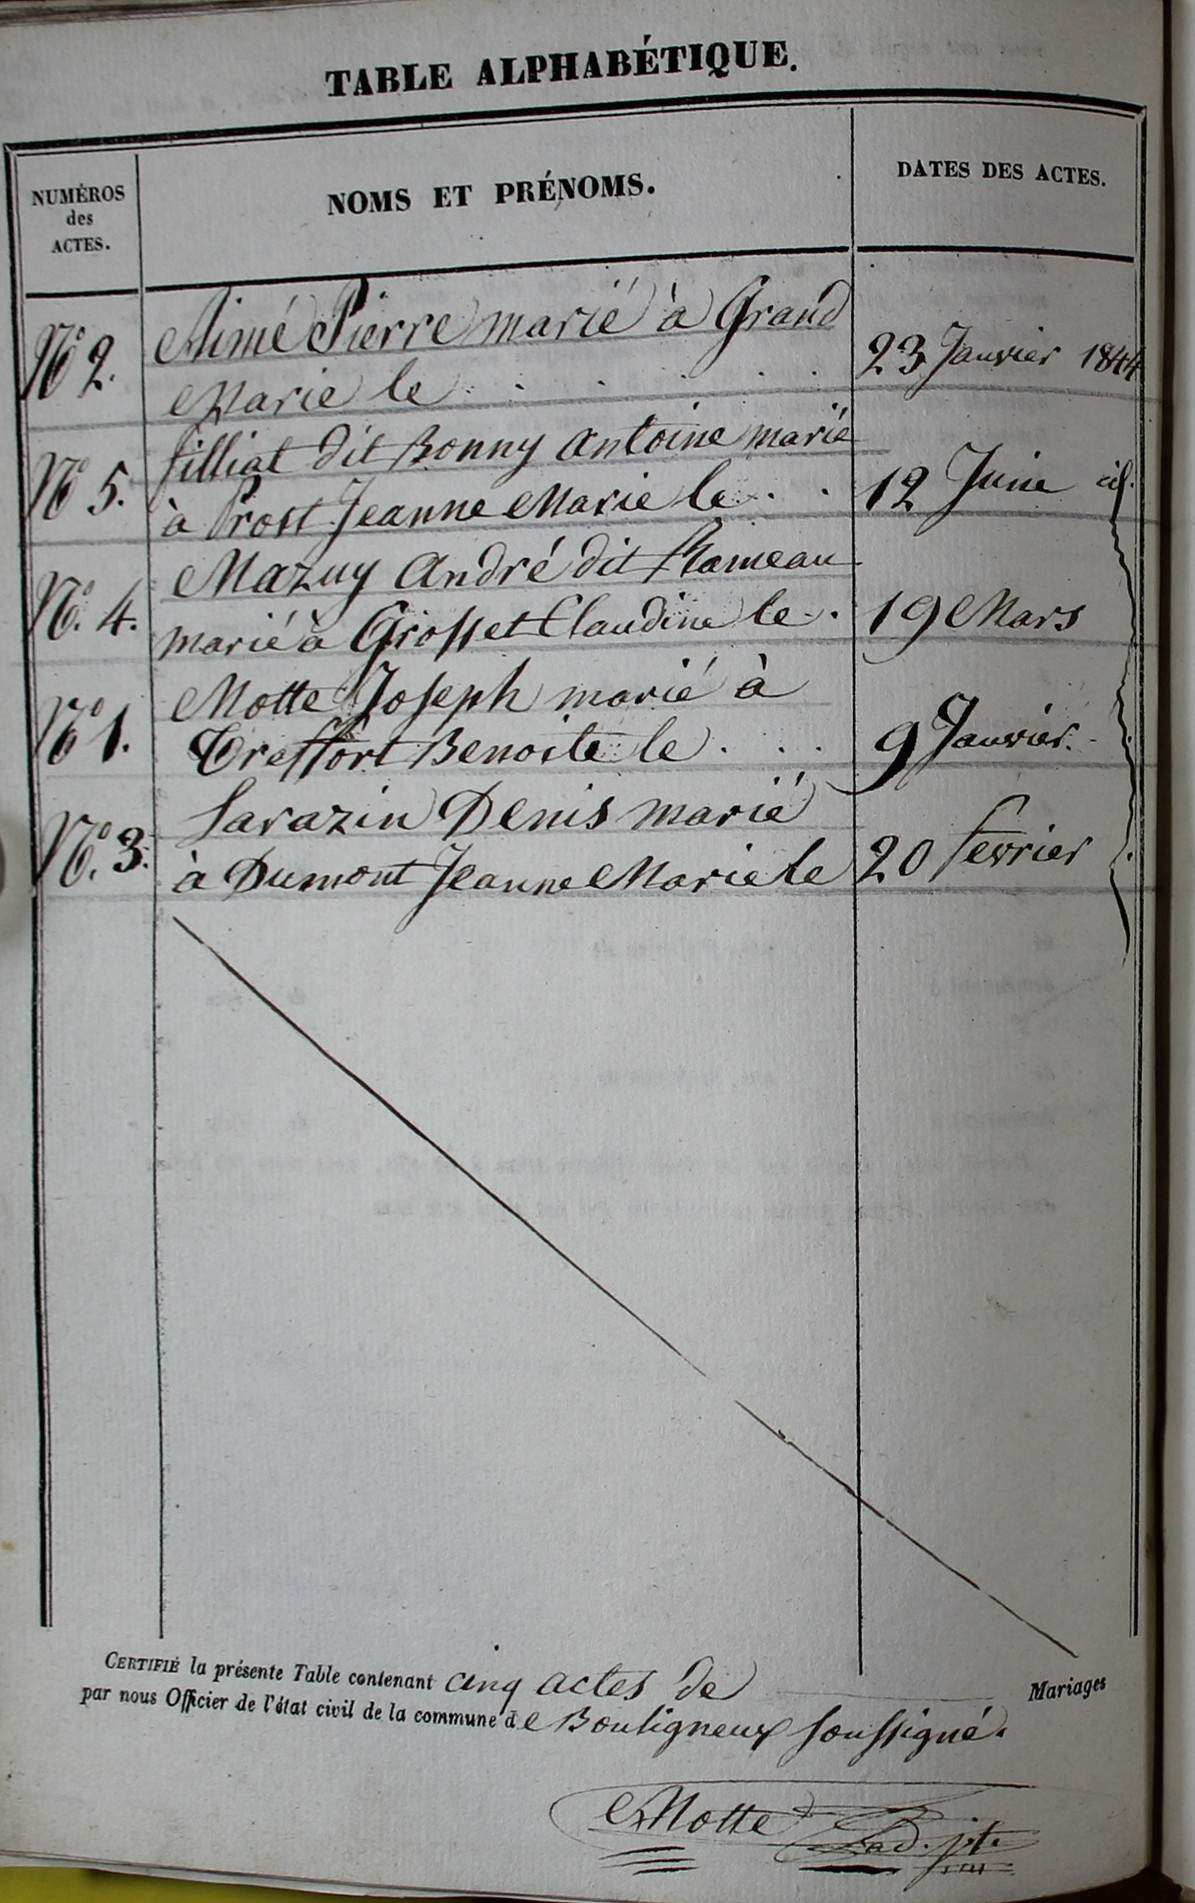 TABLE ALPHABÉTIQUE.
NUMÉROS
des
ACTES.
NOMS ET PRÉNOMS.
DATES DES ACTES.
No 2.
Aimé Pierre marié à Grand
Marie le . . . . . .
23 Janvier 1844
No 5.
filliat dit Bonny Antoine marié
à Prost Jeanne Marie le . .
12 Juin id.
No. 4.
Mazuy André dit Rameau
marié à Grosset Claudine le .
19 Mars
No 1.
Motte Joseph marié à
Treffort Benoite le . . .
9 Janvier.
No. 3.
Sarazin Denis marié
à Dumont Jeanne Marie le
20 fevrier
CERTIFIÉ la présente Table contenant cinq actes de Mariages
par nous Officier de l'état civil de la commune de Bouligneux soussigné.
Motte ad. jt.